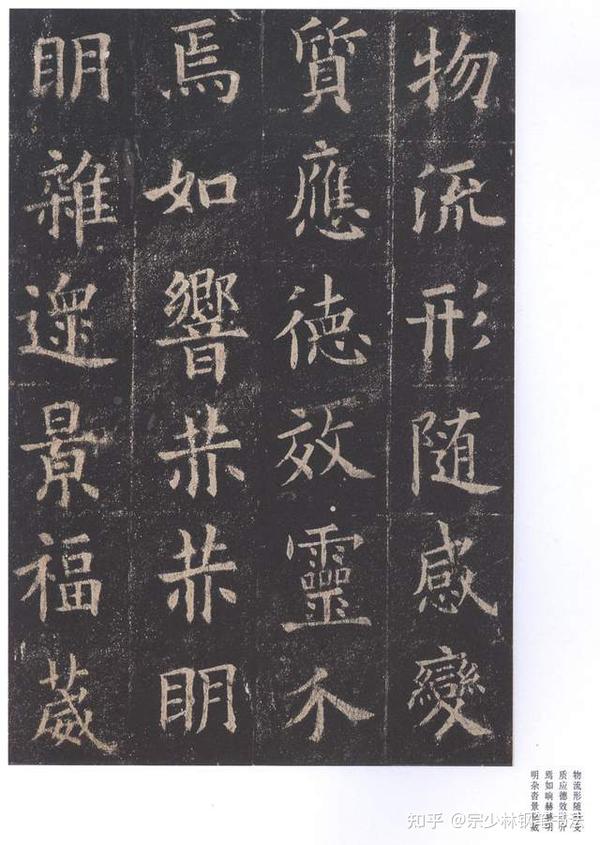 物流形随感變
質應德效靈介
焉如響赫赫明
明雜遝景福葳
物流形随感变
质应德效灵介
焉如响赫赫明
明杂沓景福葳
知乎 @宗少林钢笔书法